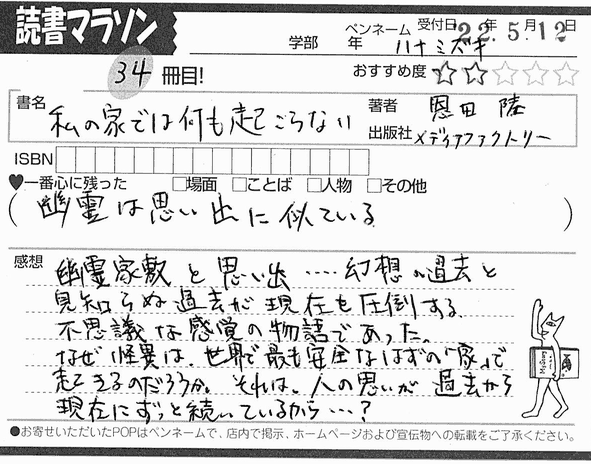 読書マラソン
学部 年 ペンネーム ハナミズキ 受付日 22年5月12日
34 冊目! おすすめ度 ★★☆☆☆
書名 私の家では何も起こらない 著者 恩田陸
出版社 メディアファクトリー
ISBN
♥一番心に残った □場面 □ことば □人物 □その他
(幽霊は思い出に似ている)
感想 幽霊家敷と思い出……幻想の過去と
見知らぬ過去が現在を圧倒する
不思議な感覚の物語であった。
なぜ怪異は、世界で最も安全なはずの「家」で
起きるのだろうか。それは。人の思いが過去から
現在にずっと続いているから…?
●お寄せいただいたPOPはペンネームで、店内で掲示、ホームページおよび宣伝物への転載をご了承ください。